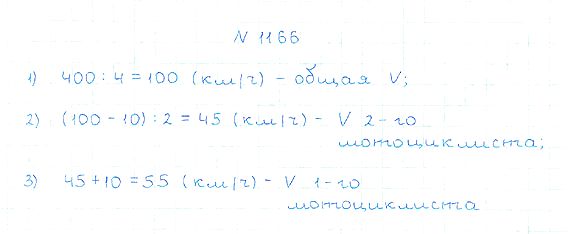 N 1166
1) 400 : 4 = 100 (км/ч) - общая V;
2) (100 - 10) : 2 = 45 (км/ч) - V 2-го
мотоциклиста;
3) 45 + 10 = 55 (км/ч) - V 1-го
мотоциклиста